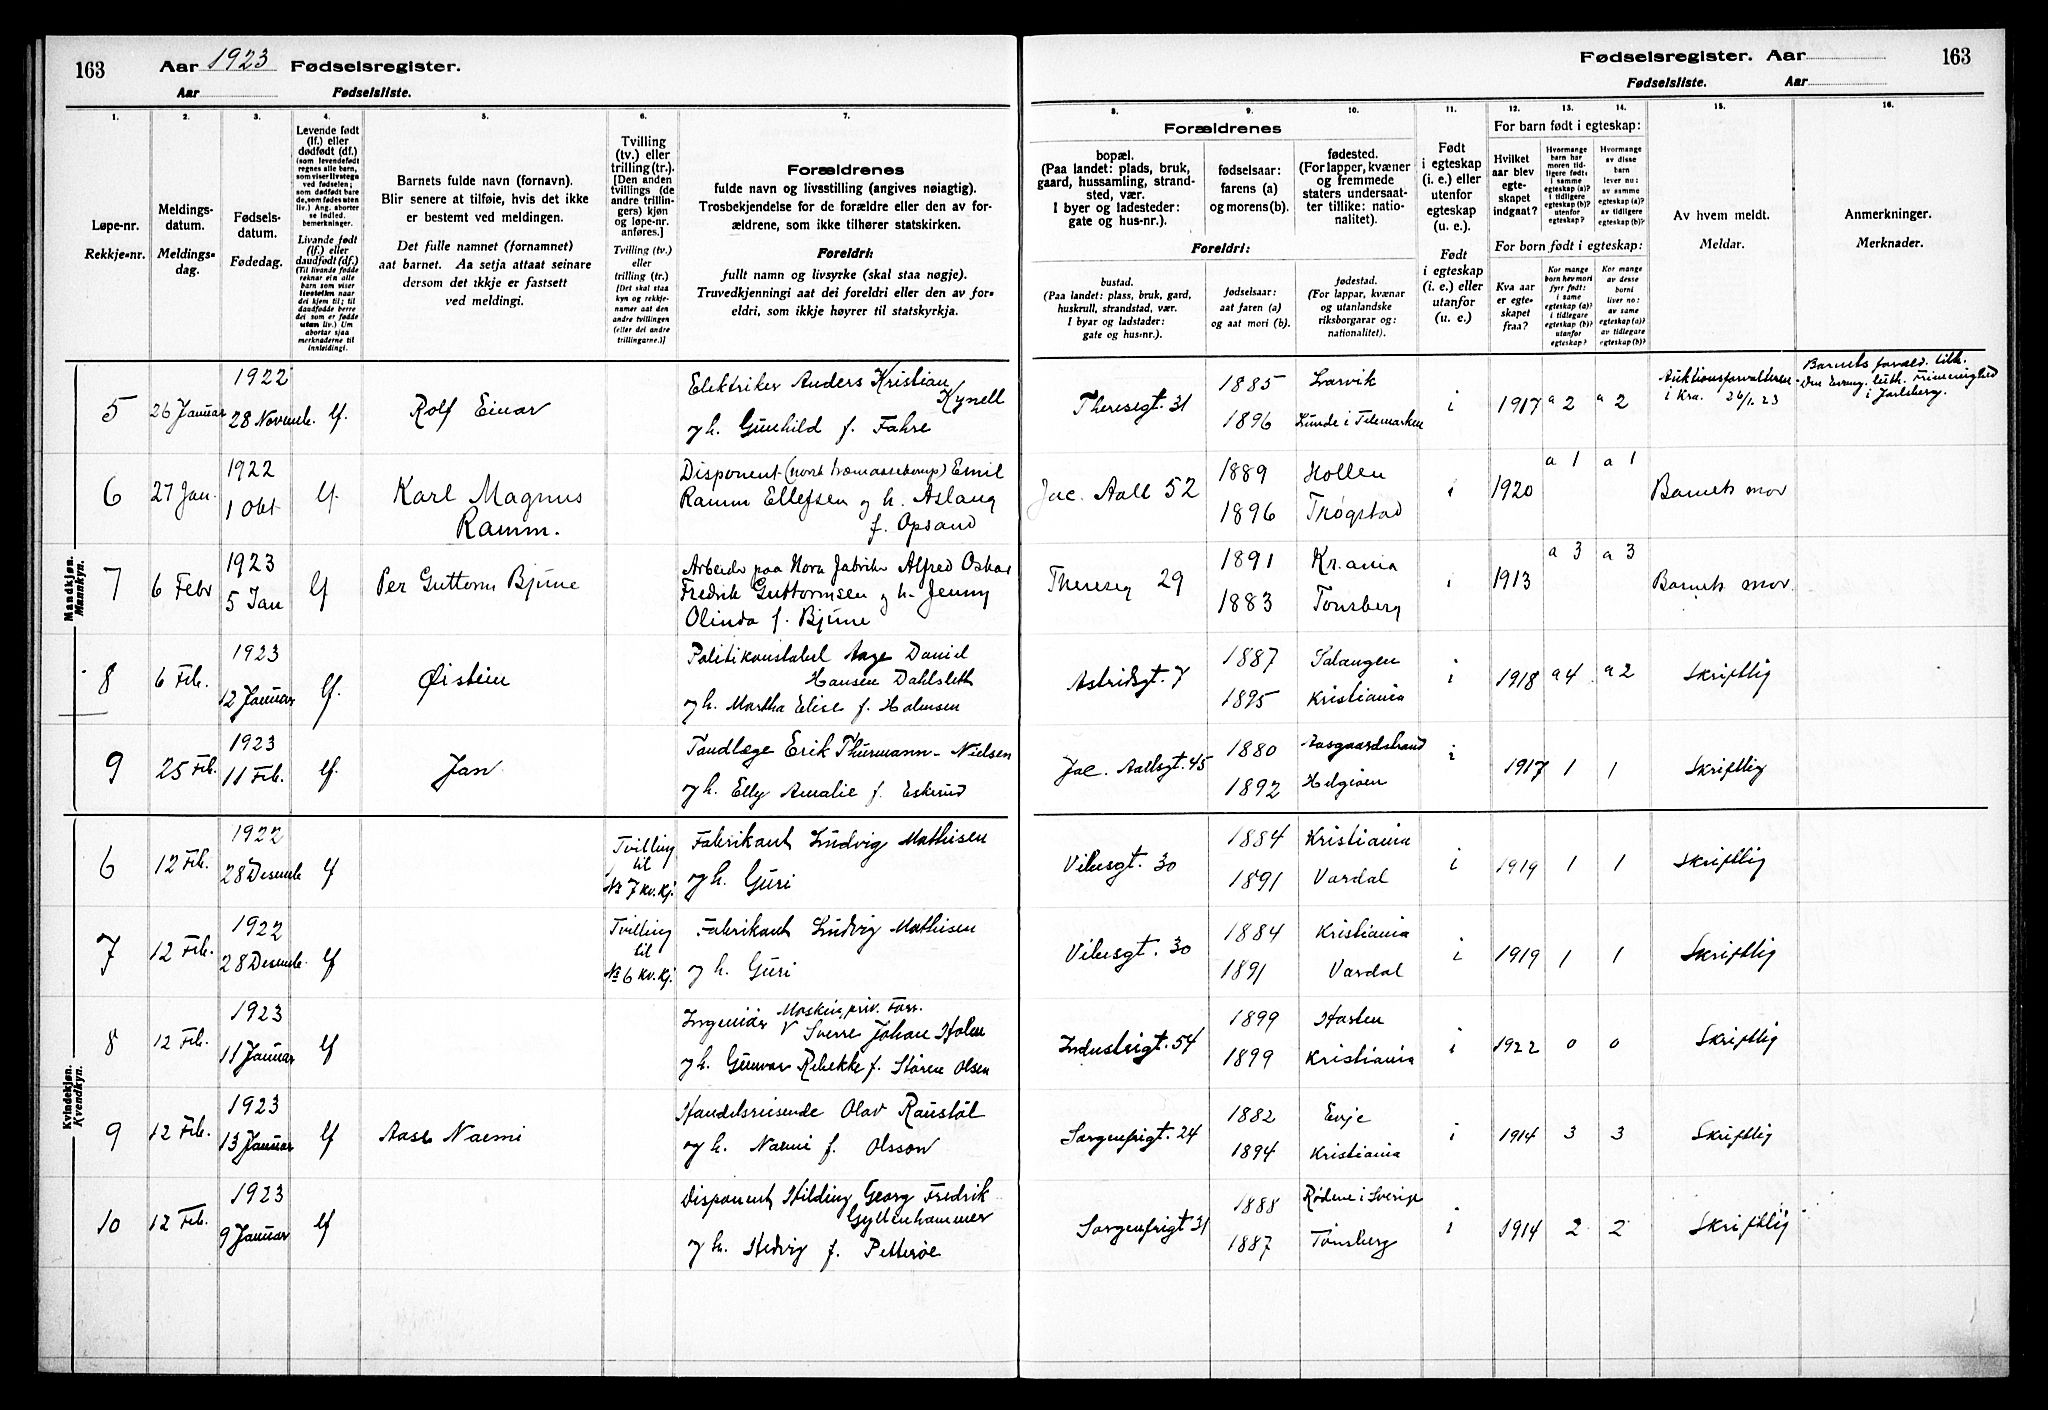 163 Aar 1923 Fødselsregister.
Aar Fødselsliste.
Fødselsregister. Aar 163
Fødselsliste. Aar
1. 2. 3. 4. 5. 6. 7. 8. 9. 10. 11. 12. 13. 14. 15. 16.
Løpe-nr.
Rekkje-nr.
Meldings-
datum.
Meldings-
dag.
Fødsels-
datum.
Fødedag.
Levende født
(lf.) eller
dødfødt (df.)
Livande født
(lf.) eller
daudfødt (df.)
Barnets fulde navn (fornavn).
Blir senere at tilføie, hvis det ikke
er bestemt ved meldingen.
Det fulle namnet (fornamnet)
aat barnet. Aa setja attaat seinare
dersom det ikkje er fastsett
ved meldingi.
Tvilling
(tv.) eller
trilling (tr.).
[Den anden
tvillings (de
andre trillin-
gers) kjøn
og løpe-nr.
anføres.]
Tvilling (tv.)
eller
trilling (tr.)
Forældrenes
fulde navn og livsstilling (angives nøiagtig).
Trosbekjendelse for de forældre eller den av for-
ældrene, som ikke tilhører statskirken.
Foreldri:
fullt namn og livsyrke (skal staa nøgje).
Truvedkjenningi aat dei foreldri eller den av for-
eldri, som ikkje høyrer til statskyrkja.
Forældrenes
bopæl.
(Paa landet: plads, bruk,
gaard, hussamling, strand-
sted, vær.
I byer og ladesteder:
gate og hus-nr.).
fødselsaar:
farens (a)
og morens (b).
fødested.
(For lapper, kvæner
og fremmede
staters undersaat-
ter tillike: natio-
nalitet).
Foreldri:
bustad.
(Paa landet: plass, bruk, gard,
huskrull, strandstad, vær.
I byar og ladstader:
gate og hus-nr.).
fødselsaar:
aat faren (a)
og aat mori (b).
fødestad.
(For lappar, kvænar
og utanlandske
riksborgarar og:
nationalitet).
Født
i egteskap
(i. e.) eller
utenfor
egteskap
(u. e.).
Født
i egteskap
(i. e.) eller
utanfor
(u. e.)
For barn født i egteskap:
Hvilket
aar blev
egte-
skapet
indgaat?
For born født i egteskap:
Kva aar
er egte-
skapet
fraa?
Av hvem meldt.
Meldar.
Anmerkninger.
Merknader.
Mandkjøn.
Mannkyn.
5 26 Januar 1922 28 Novemb. lf. Rolf Einar Elektriker Anders Kristian Kynell
og h. Gunhild f. Fahre
Theresegt. 31 1885 Larvik
1896 Lunde i Telemarken
i 1917 a 2 a 2 Auktionsforvalteren i Kra. 26/1.23 Barnets foræld. tilh. Den Evang. luth. Frimenighed i Jarlsberg.
6 27 Jan. 1922 1 Okt lf. Karl Magnus
Ramm.
Disponent Emil
Ramm Ellefsen og h. Aslaug
f. Opsand
Jac. Aall 52 1889 Hollen
1896 Trøgstad
i 1920 a 1 a 1 Barnets mor
7 6 Febr 1923 5 Jan lf Per Guttorm Bjune Arbeider paa Nora fabriker Alfred Oskar
Fredrik Guttormsen og h. Jenny
Olinda f. Bjune
Thereseg 29 1891 Kr.ania
1883 Tønsberg
i 1913 a 3 a 3 Barnets mor.
8 6 Feb. 1923 12 Januar lf. Øistein Politikonstabel Aage Daniel
Hansen Dahlsleth
og h. Martha Elise f. Halmsen
Astridsgt. 7 1887 Salangen
1895 Kristiania
i 1918 a 4 a 2 Skriftlig
9 25 Feb. 1923 11 Feb. lf. Jan Tandlæge Erik Thurmann-Nielsen
og h. Elly Amalie f. Eskerud
Jac. Aallsgt. 45 1880 Aasgaardstrand
1892 Helgøen
i 1917 1 1 Skriftlig
Kvindekjøn.
Kvendkyn.
6 12 Feb. 1922 28 Desemb. lf Tvilling til No 7 kv. kj. Fabrikant Ludvig Mathisen
og h. Guri
Vibesgt. 30 1884 Kristiania
1891 Vardal
i 1919 1 1 Skriftlig
7 12 Feb. 1922 28 Desemb. lf Tvilling til No 6 kv. kj. Fabrikant Ludvig Mathisen
og h. Guri
Vibesgt. 30 1884 Kristiania
1891 Vardal
i 1919 1 1 Skriftlig
8 12 Feb. 1923 11 Januar lf Maskin, priv. Forr.
Ingeniør Sverre Johan Holm
og h. Gunvor Rebekke f. Støren Olsen
Industrigt. 54 1899 Horten
1899 Kristiania
i 1922 0 0 Skriftlig
9 12 Feb. 1923 13 Januar lf Aase Naemi Handelsreisende Olav Raustøl
og h. Naemi f. Olsson
Sorgenfrigt. 24 1882 Evje
1894 Kristiania
i 1914 3 3 Skriftlig
10 12 Feb. 1923 9 Januar lf Disponent Hilding Georg Fredrik
Gyllenhammer
og h. Hedvig f. Petterøe
Sorgenfrigt 31 1888 Rødene i Sverige
1887 Tønsberg
i 1914 2 2 Skriftlig